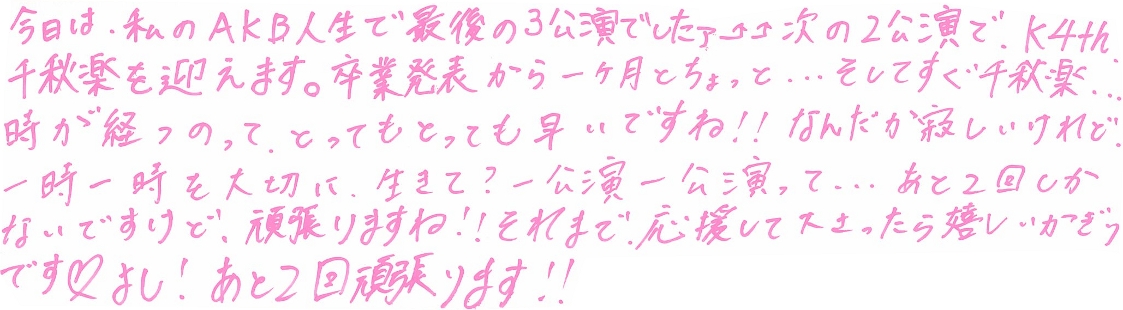 今日は、私のAKB人生で最後の3公演でしたァ→→次の2公演で、K4th
千秋楽を迎えます。卒業発表から一ヶ月とちょっと…そしてすぐ千秋楽…
時が経つのって、とってもとっても早いですね!!なんだか寂しいけれど、
一時一時を大切に、生きて?一公演一公演って…あと2回しか
ないですけど、頑張りますね!!それまで、応援して下さったら嬉しいかぎり
です♡よし!あと2回頑張ります!!